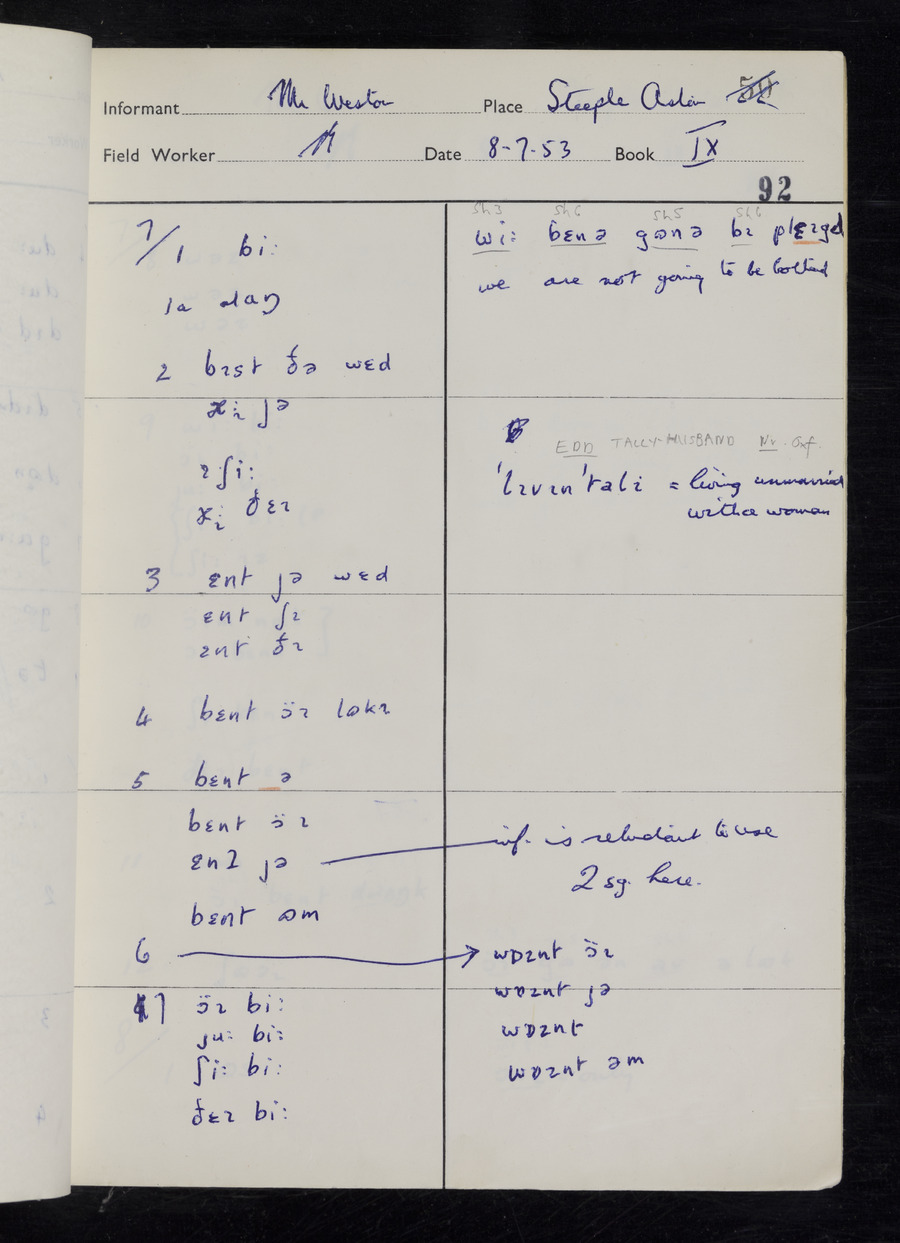 Informant Mr Weston Place Steeple Aston
Field Worker Date 8-7-53 Book IX
92
7/1 bi:
1a
2 bɪst ðə wɛd
jə
ɪ ʃi:
ðɛɪ
3 ɛnt jə wɛd
ɛnt ʃɪ
ɛnt ðɪ
4 bɛnt ɜ̈ɪ
5 bɛnt ə
bɛnt ɜ̈ɪ
jə
bɛnt əm
6
7 ɜ̈ɪ bi:
ju: bi:
ʃi: bi:
ðɛɪ bi:
Sh3 Sh6 Sh5 Sh6
wi: bɛnə gənə bɪ
we are not going to be
EDD TALLY-HUSBAND Nr. Oxf.
ˈlɪvɪnˈtalɪ = living unmarried
with a woman
inf. is reluctant to use
2 sg. here.
wɒznt ɜ̈ɪ
wɒznt jə
wɒznt
wɒznt əm